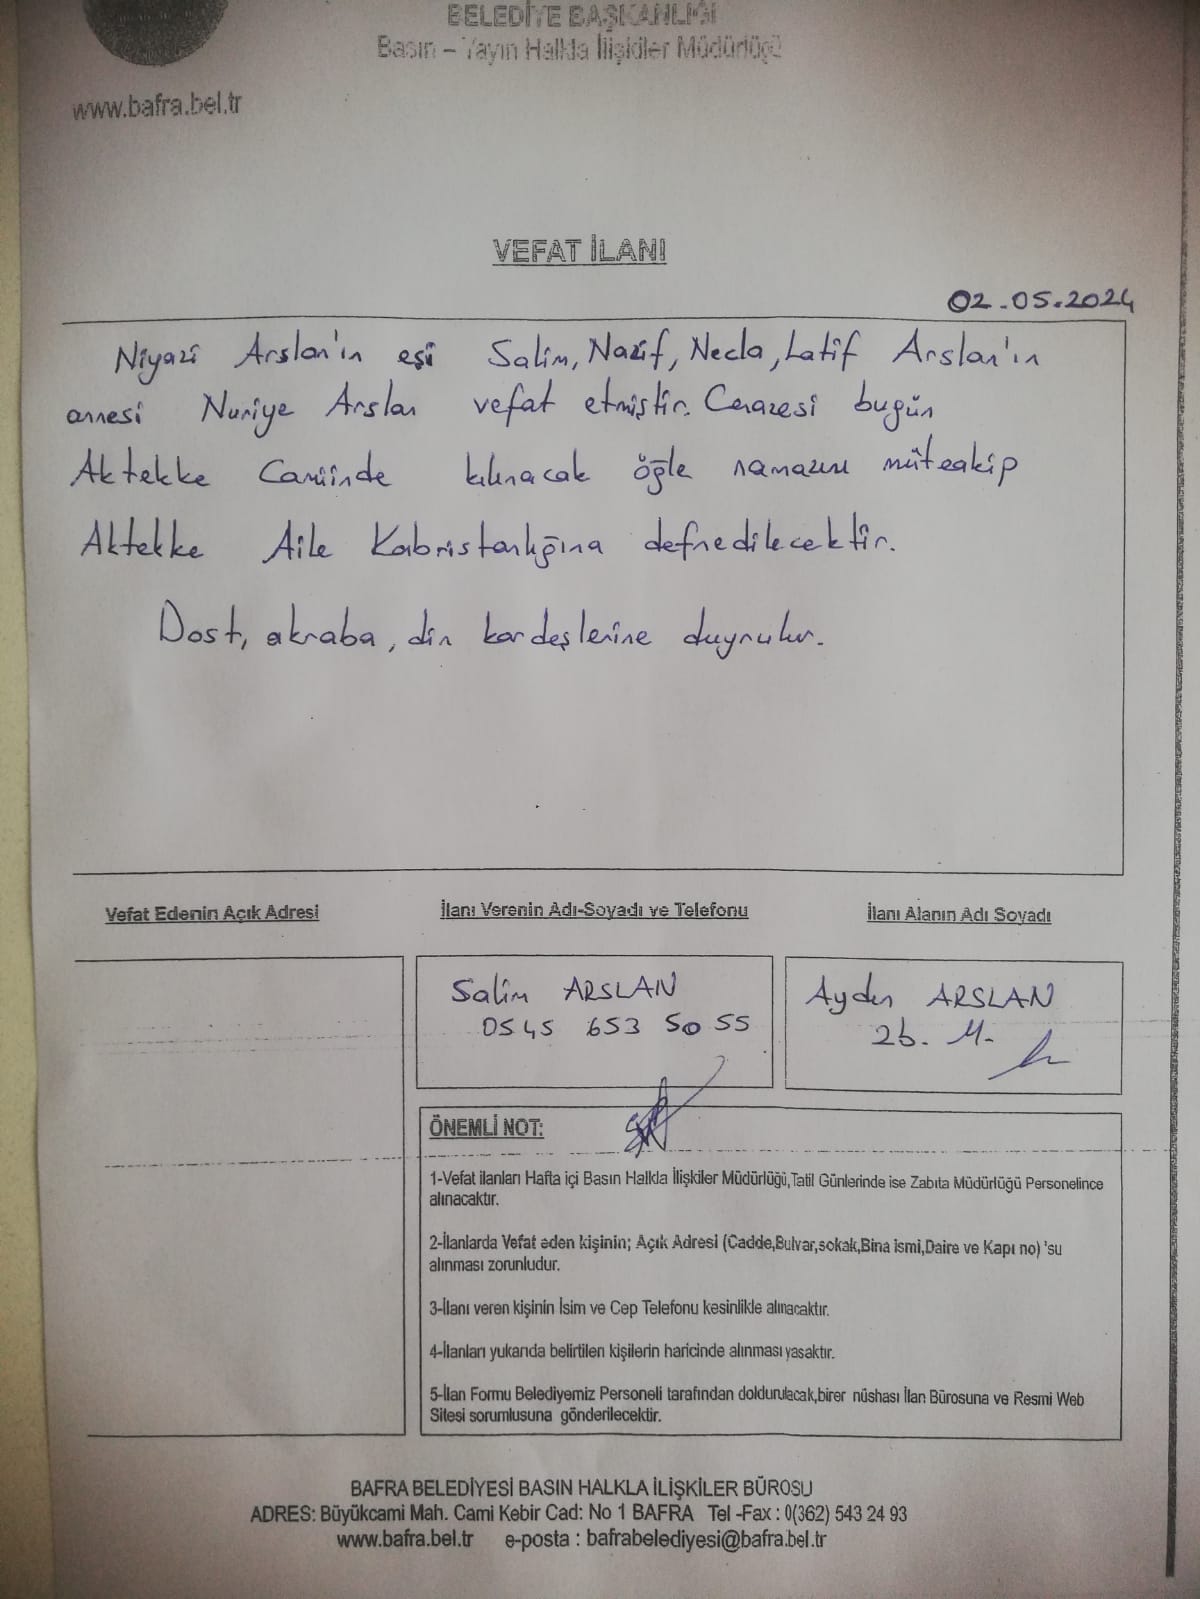 BELEDİYE BAŞKANLIĞI
Basın – Yayın Halkla İlişkiler Müdürlüğü
www.bafra.bel.tr
VEFAT İLANI
02.05.2024
Niyazi Arslan'ın eşi Salim, Nazif, Necla, Latif Arslan'ın
annesi Nuriye Arslan vefat etmiştir. Cenazesi bugün
Aktekke Camiinde kılınacak öğle namazını müteakip
Aktekke Aile Kabristanlığına defnedilecektir.
Dost, akraba, din kardeşlerine duyrulur.
Vefat Edenin Açık Adresi
İlanı Verenin Adı-Soyadı ve Telefonu
İlanı Alanın Adı Soyadı
Salim ARSLAN
0545 653 50 55
Aydın ARSLAN
Zb. M.
ÖNEMLİ NOT:
1-Vefat ilanları Hafta içi Basın Halkla İlişkiler Müdürlüğü,Tatil Günlerinde ise Zabıta Müdürlüğü Personelince
alınacaktır.
2-İlanlarda Vefat eden kişinin; Açık Adresi (Cadde,Bulvar,sokak,Bina ismi,Daire ve Kapı no) 'su
alınması zorunludur.
3-İlanı veren kişinin İsim ve Cep Telefonu kesinlikle alınacaktır.
4-İlanları yukarıda belirtilen kişilerin haricinde alınması yasaktır.
5-İlan Formu Belediyemiz Personeli tarafından doldurulacak,birer nüshası İlan Bürosuna ve Resmi Web
Sitesi sorumlusuna gönderilecektir.
BAFRA BELEDİYESİ BASIN HALKLA İLİŞKİLER BÜROSU
ADRES: Büyükcami Mah. Cami Kebir Cad: No 1 BAFRA Tel -Fax : 0(362) 543 24 93
www.bafra.bel.tr e-posta : bafrabelediyesi@bafra.bel.tr